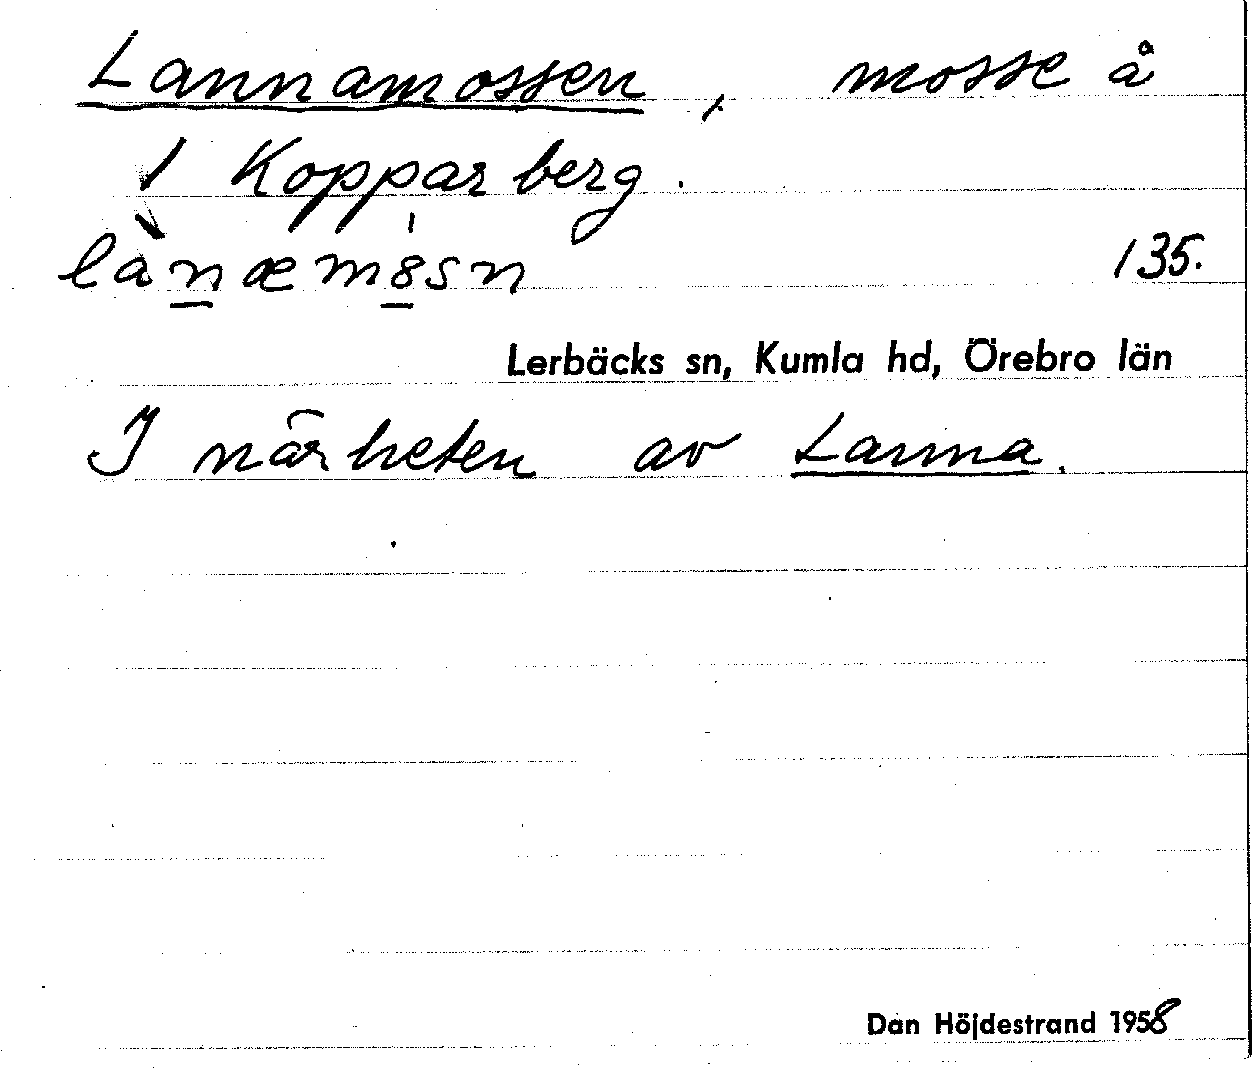 Lannamossen, mosse å
1 Kopparberg.
lànæmösn 135.
Lerbäcks sn, Kumla hd, Örebro län
I närheten av Lanna.
Dan Höjdestrand 1958